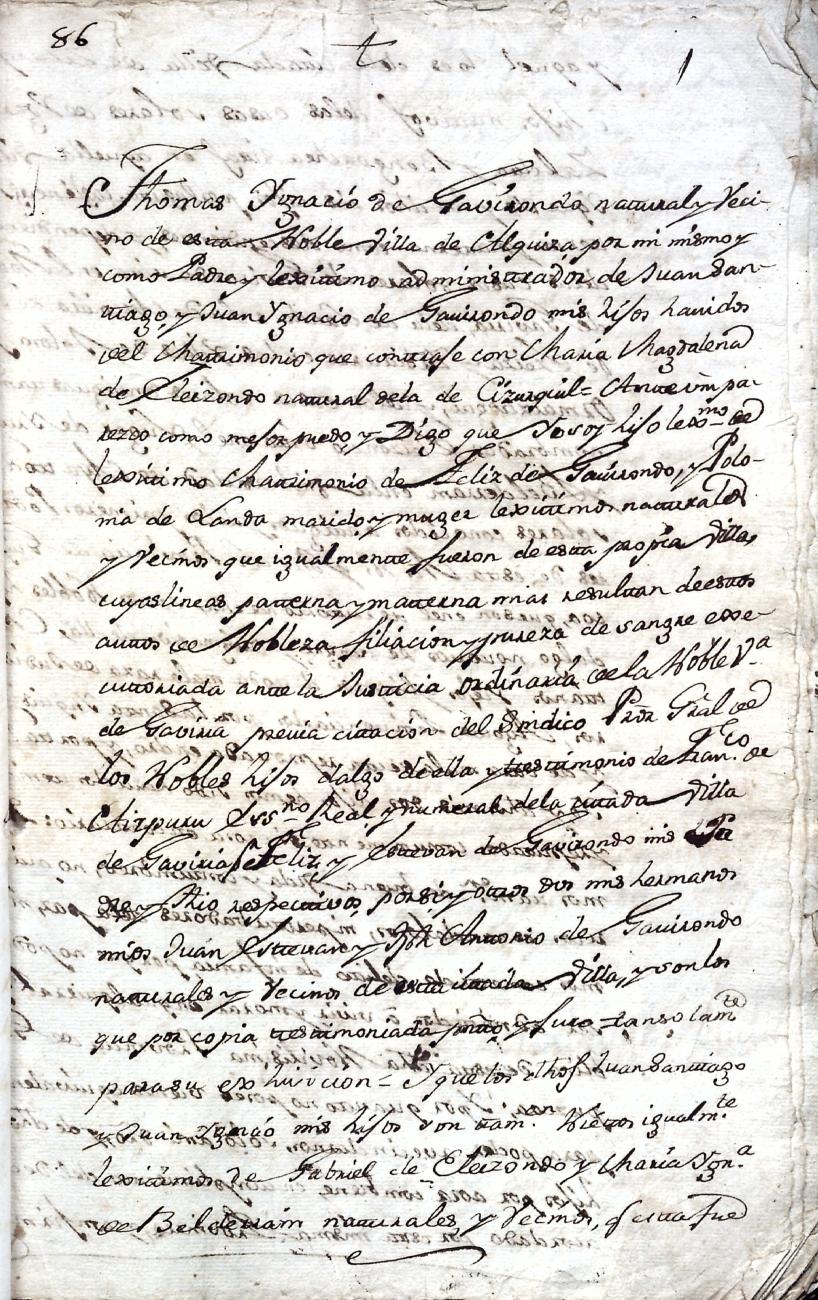 86
1
Thomas Ygnacio de Gavirondo natural y Veci-
no de esta Noble Villa de Alquiza por mi mismo y
como Padre y lexitimo administrador de Juan San-
tiago, y Juan Ygnacio de Gavirondo mis hijos havidos
del Matrimonio que contraje con Maria Magdalena
de Eleizondo natural dela de Cizurquil= Ante vm pa-
rezco como mejor puedo, y Digo que Yo soy hijo lexmo de
lexitimo Matrimonio de Feliz de Gavirondo, y Polo-
nia de Landa marido y muger lexitimos naturales
y Vecinos que igualmente fueron de esta propia Villa,
cuyas lineas paterna y materna mias resultan de estos
autos de Nobleza filiacion y pureza de sangre exe-
cutoriada ante la Justicia ordinaria de la Noble Va
de Gaviria previa citacion del Sindico Pror Gral de
los Nobles hijos dalgo de ella y testimonio de Franco de
Aizpuru Essno Real y numeral de la citada Villa
de Gaviria Feliz, y Estevan de Gavirondo mis Pa
dre y Thio respectivos, por si y otros dos mis hermanos
mios Juan Estevan y Jph Antonio de Gavirondo
naturales y Vecinos de esta citada Villa, y son los
que por copia testimoniada pnto y Juro tan solamte
para su exhivicion= Y que los dhos Juan Santiago
y Juan Ygnacio mis hijos son tam. Nietos igualmte
lexitimos de Gabriel de Eleizondo y Maria Ygna
de Belderrain naturales, y Vecinos, q esta fue